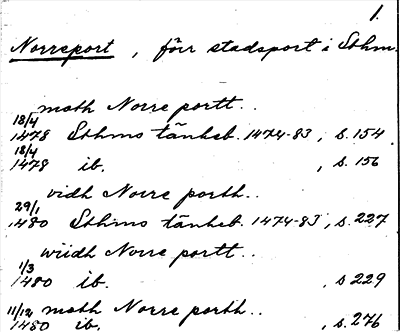 1.
Norreport, förr stadsport i Sthm.
moth Norre portt..
18/4
1478 Sthms tänkeb. 1474-83, s. 154
18/4
1478 ib. , s. 156
vidh Norre porth..
29/1
1480 Sthms tänkeb. 1474-83, s. 227
wiidh Norre portt..
1/3
1480 ib. , s 229
11/12 moth Norre porth..
1480 ib. , s. 276